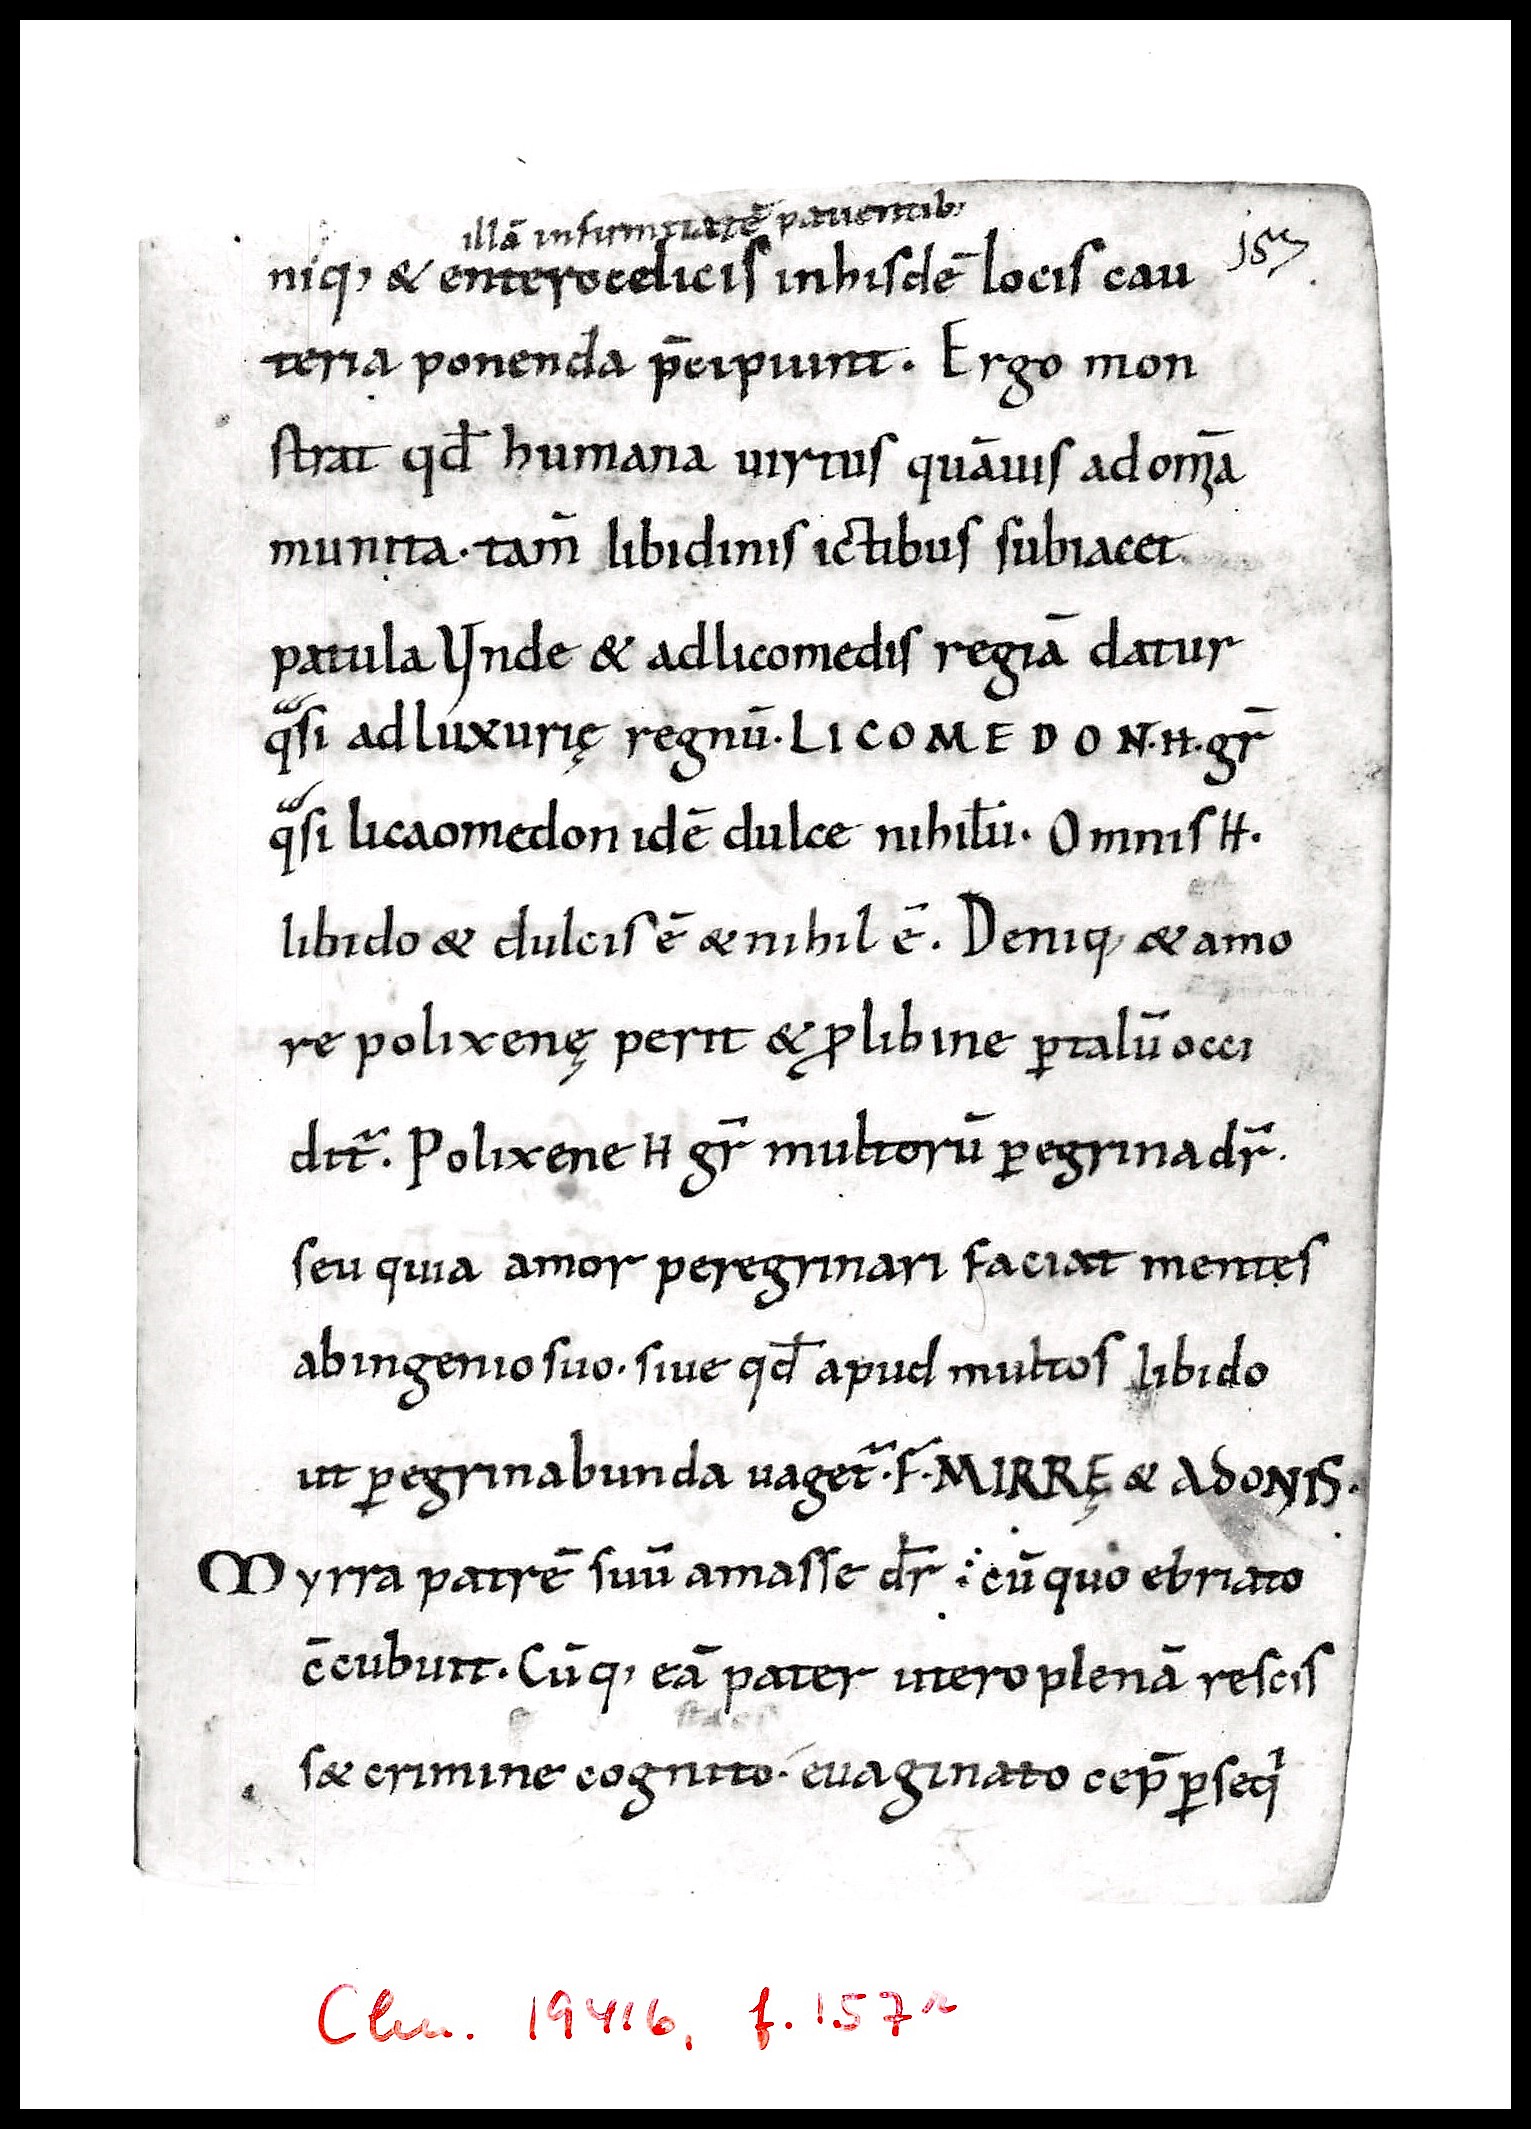 illā infirmitatē patientib;
157
niq; & enterocelicis inhisdē locis cau
teria ponenda p̄cipiunt. Ergo mon
strat qd̄ humana uirtus quāuis ad om̄a
munita. tam̄ libidinis ictibus subiacet
patula Ynde & adlicomedis regiā datur
qᵃsi adluxurię regnū. LICOMEDON. H. gr̄
qᵃsi licaomedon idē dulce nihilū. Omnis H.
libido & dulcis ē & nihil ē. Deniq; & amo
re polixenę perit & ꝓlibine ꝑtalū occi
dit᷑. Polixene H gr̄ multorū ꝑegrina dr̄.
seu quia amor peregrinari faciat mentes
abingenio suo. siue qd̄ apud multos libido
ut ꝑegrinabunda uaget᷑. F. MIRRĘ & ADONIS.
Myrra patrē suū amasse dr̄ : cū quo ebriato
c̄cubuit. Cūq; eā pater utero plenā rescis
s& crimine cognito. euaginato cep̄ ꝑseqⁱ
Clm. 19416, f. 157r